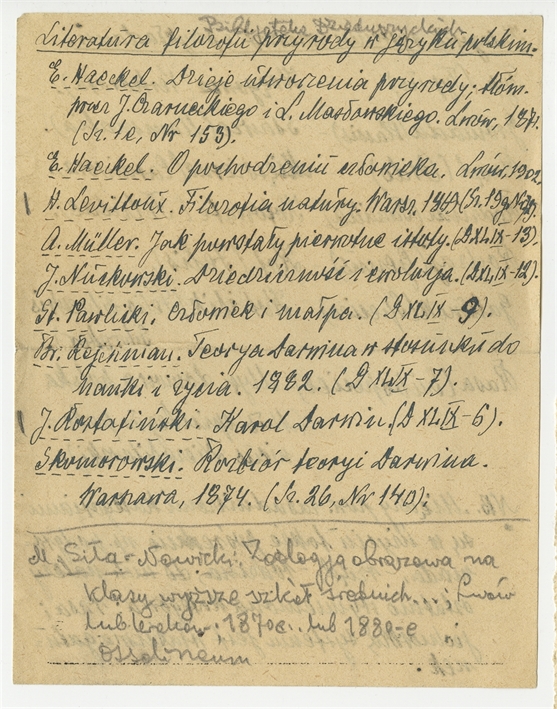 Biblijoteka Dzieduszyckich
Literatura filozofii przyrody w języku polskim.
E. Haeckel. Dzieje utworzenia przyrody; tłóm.
przez J. Czarneckiego i L. Masłowskiego. Lwów, 1871.
(Sz. 1e, Nr 153).
E. Haeckel. O pochodzeniu człowieka. Lwów, 1902.
H. Levittoux. Filozofia natury. Warsz. 1869 (Sz. 19g, Nr
A. Müller. Jak powstały pierwotne istoty. (D XLIX-13).
J. Nuckowski. Dziedziczność i ewolucja. (D XLIX-12).
St. Pawlicki. Człowiek i małpa. (D XLIX-9).
Br. Rejchman. Teorya Darwina w stosunku do
nauki i życia. 1882. (D XLIX-7).
J. Rostafiński. Karol Darwin. (D XLIX-6).
Skomorowski. Rozbiór teoryi Darwina.
Warszawa, 1874. (Sz. 26, Nr 140);
M. Siła-Nowicki: Zoologja obrazowa na
klasy wyższe szkół średnich...; Lwów
lub 1870e. lub 1880-e
Ossolineum